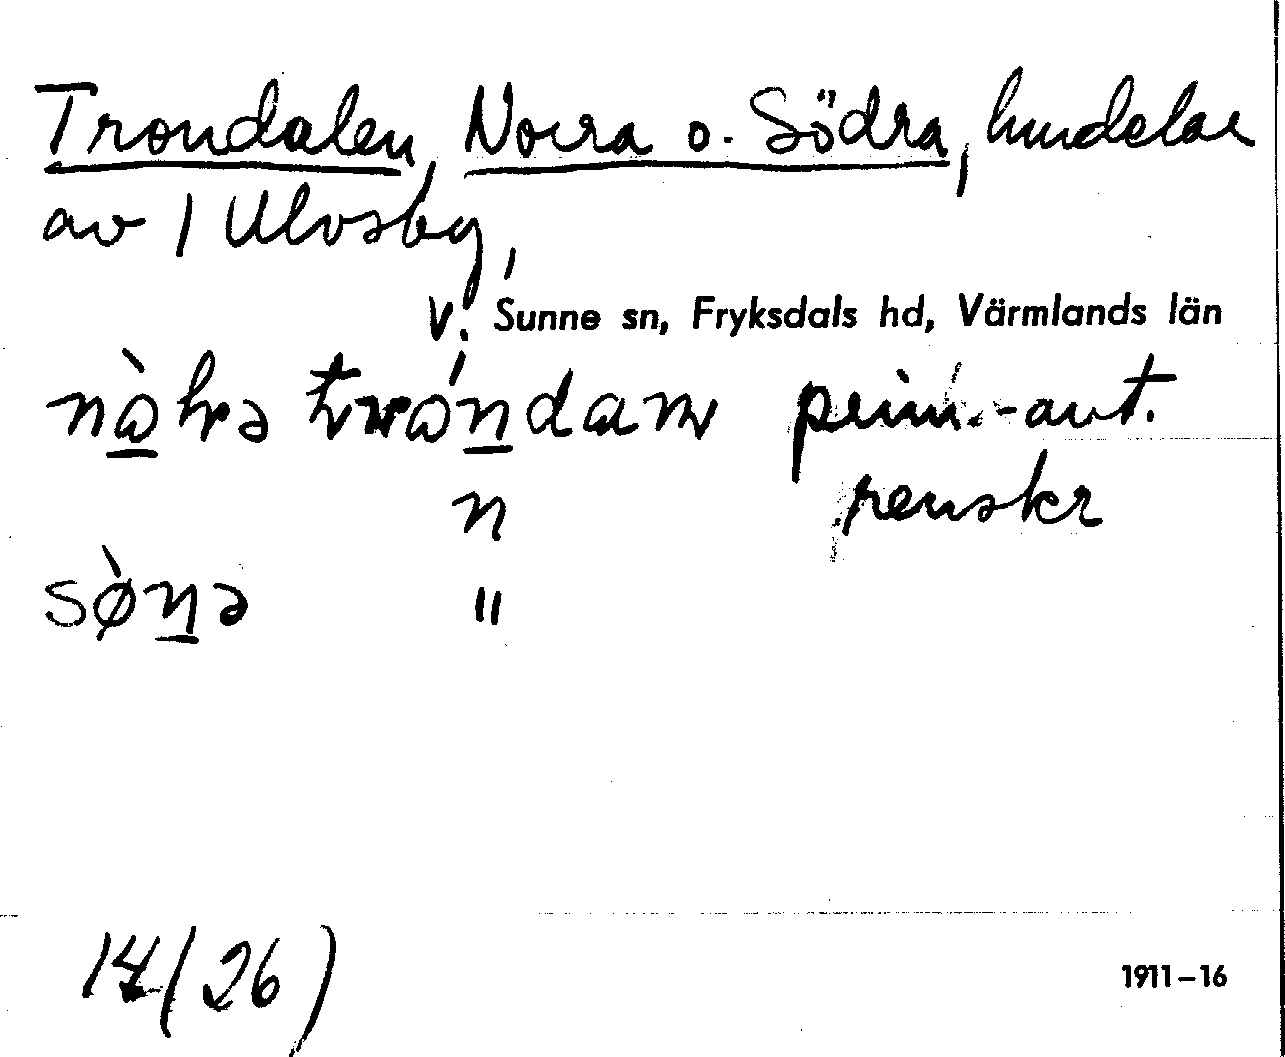 Trondalen, Norra o. Södra, hmdelar
av 1 Ulvsby,
V. Sunne sn, Fryksdals hd, Värmlands län
prim.-ant.
n renskr
"
14(26)
1911-16